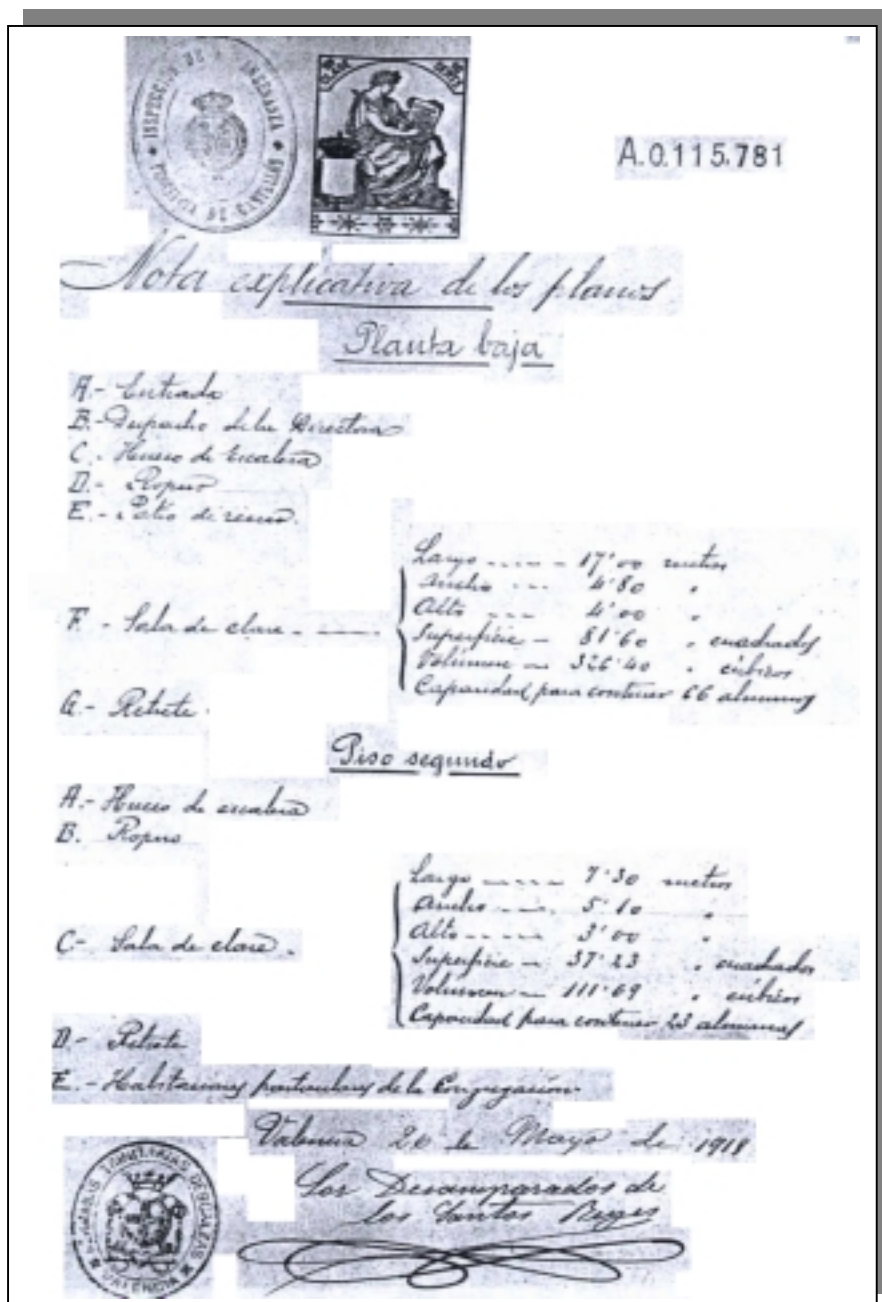 INSPECCIÓN DE 1ª ENSEÑANZA
PROVINCIA DE CASTELLÓN
A.0.115.781
Nota explicativa de los planos
Planta baja
A.- Entrada
B.- Despacho de la Directora
C.- Hueco de Escalera
D.- Ropero
E.- Patio de recreo.
F.- Sala de clase
Largo ---- 17'00 metros
Ancho --- 4'80 "
Alto --- 4'00 "
Superficie - 81'60 " cuadrados
Volúmen - 326'40 " cúbicos
Capacidad para contener 66 alumnos
G.- Retrete.
Piso segundo
A.- Hueco de escalera
B. Ropero
C- Sala de clase.
Largo ---- 7'30 metros
Ancho --- 5'10 "
Alto ---- 3'00 "
Superficie - 37'23 " cuadrados
Volúmen - 111'69 " cúbicos
Capacidad para contener 23 alumnas
D.- Retrete
E.- Habitaciones particulares de la Congregación.
Valencia 20 de Mayo de 1918
Sor Desamparados de
los Santos Reyes
TRINITARIAS DESCALZAS
VALENCIA